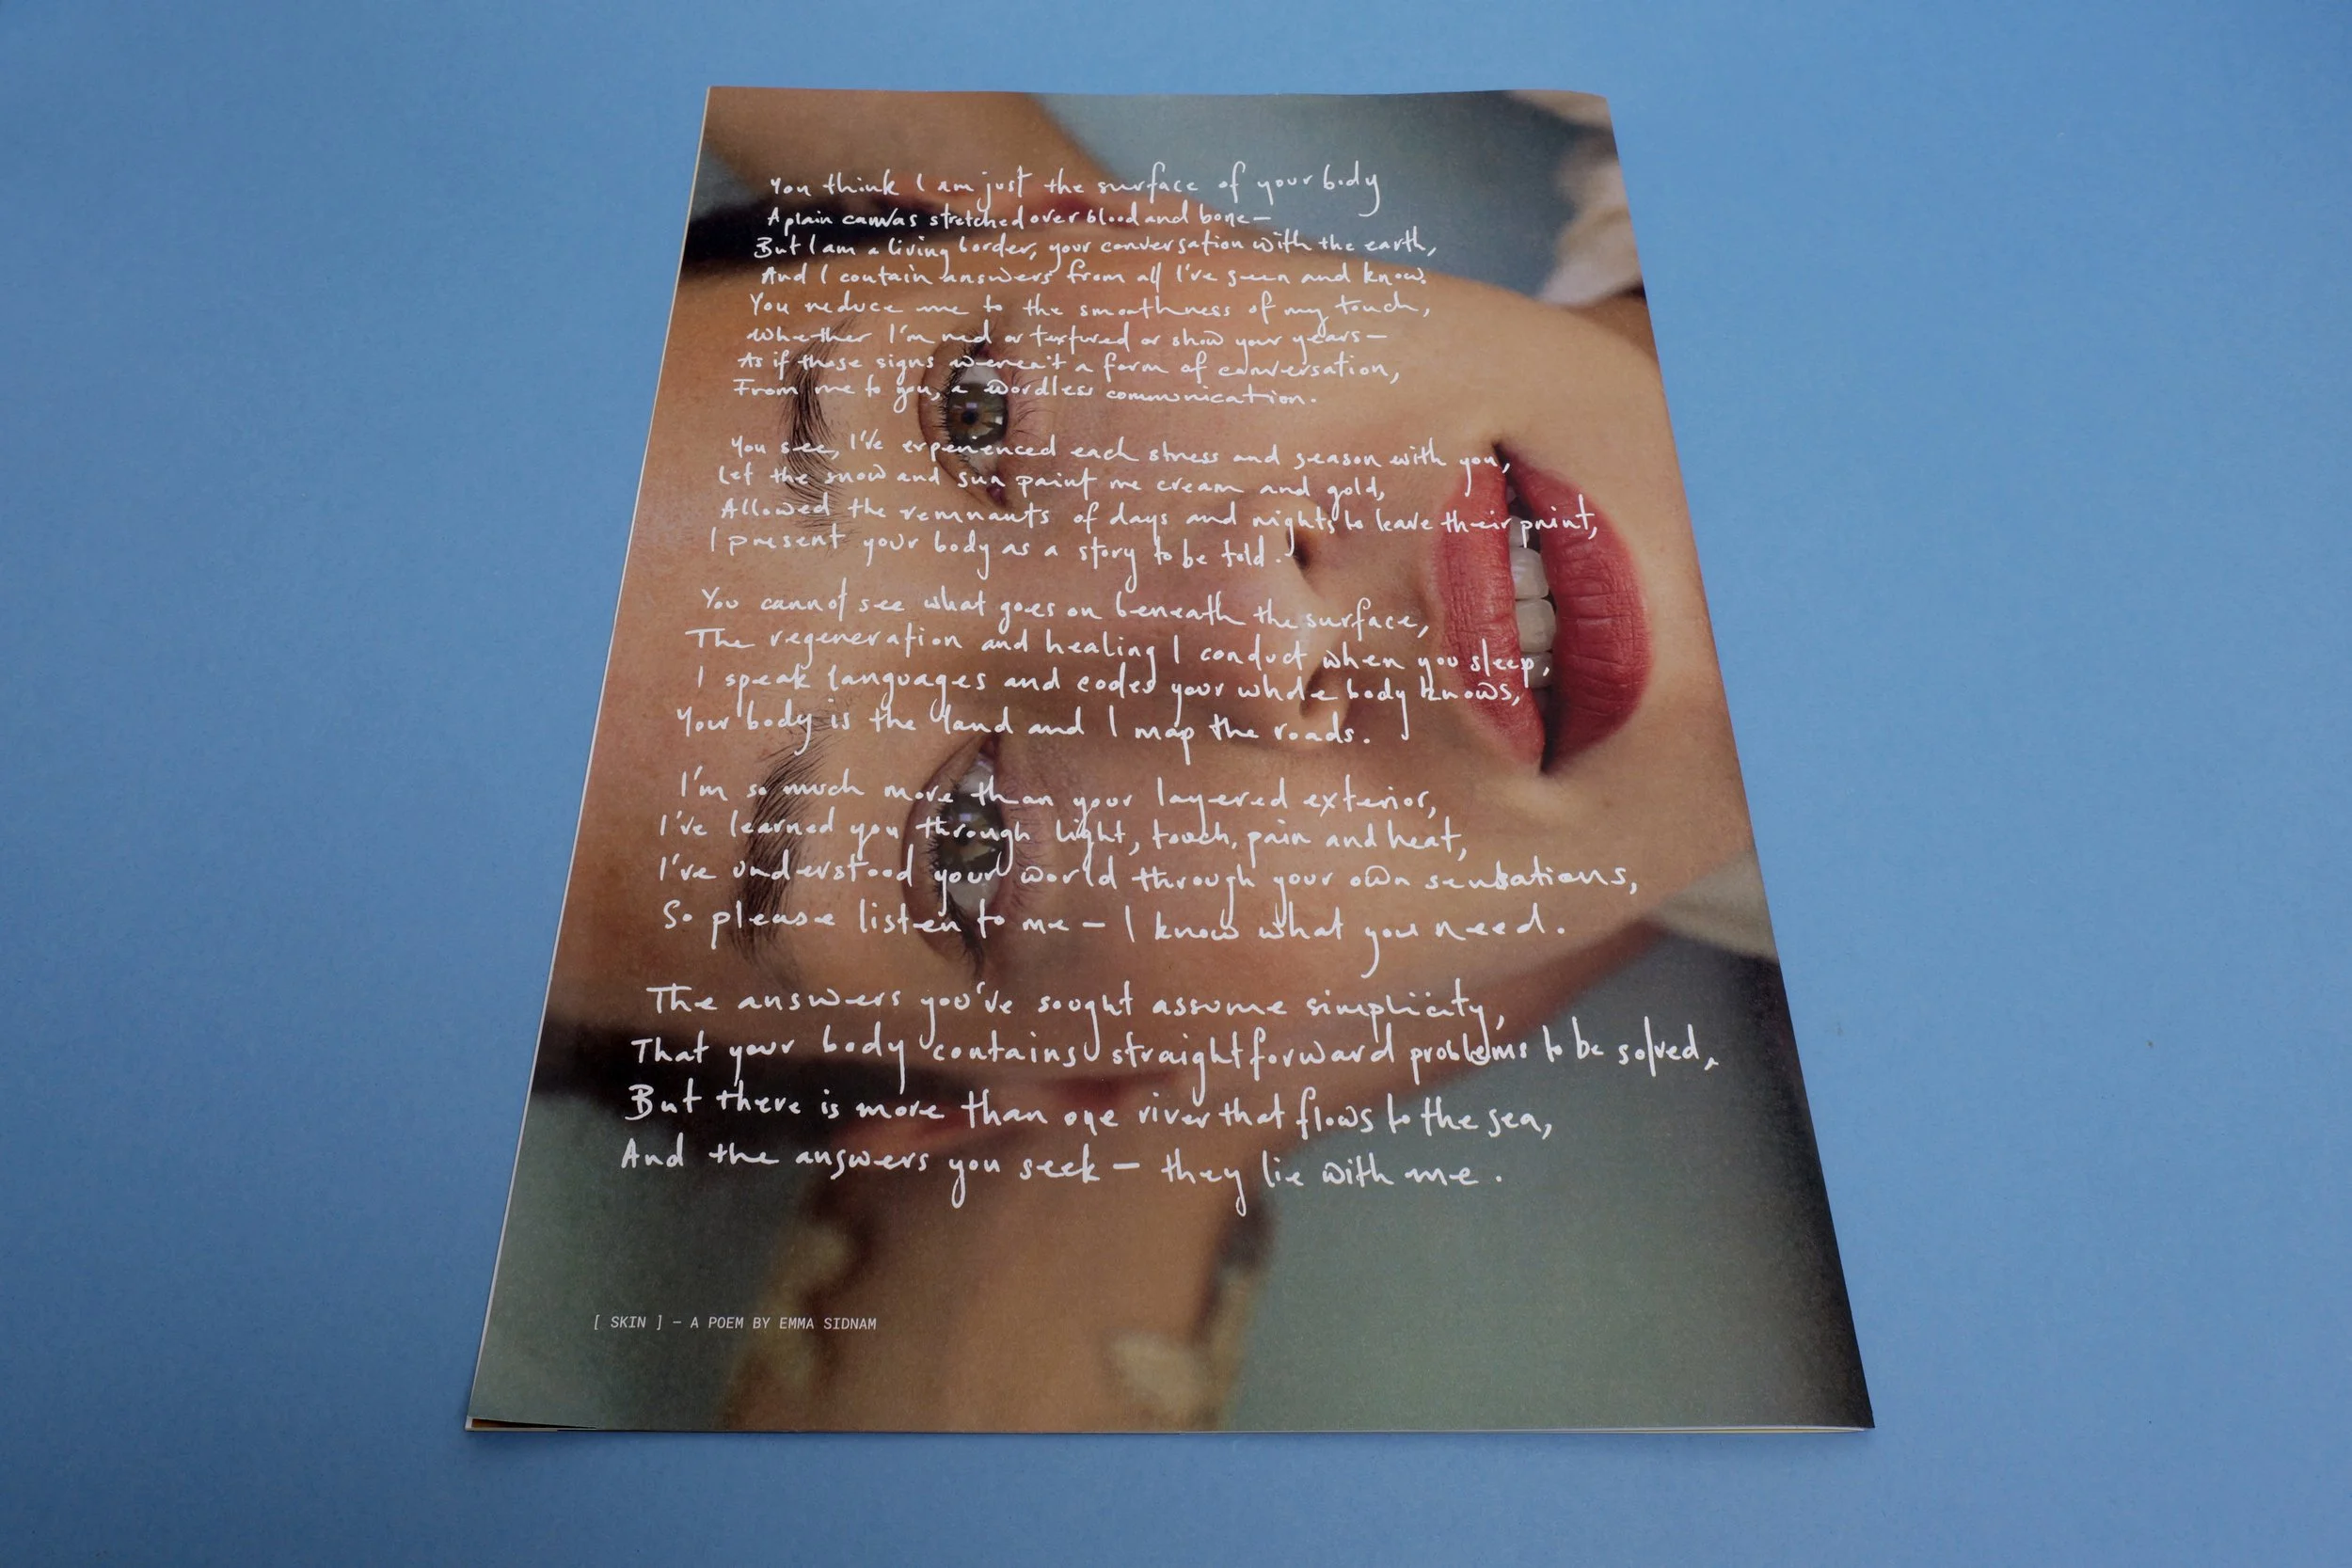 You think I am just the surface of your body
A plain canvas stretched over blood and bone—
But I am a living border, your conversation with the earth,
And I contain answers from all I've seen and know.
You reduce me to the smoothness of my touch,
Whether I'm red or textured or show your years—
As if those signs weren't a form of conversation,
From me to you, a wordless communication.
You see, I've experienced each stress and season with you,
Let the snow and sun paint me cream and gold,
Allowed the remnants of days and nights to leave their print,
I present your body as a story to be told.
You cannot see what goes on beneath the surface,
The regeneration and healing I conduct when you sleep,
I speak languages and codes your whole body knows,
Your body is the land and I map the roads.
I'm so much more than your layered exterior,
I've learned you through light, touch, pain and heat,
I've understood your world through your own sensations,
So please listen to me — I know what you need.
The answers you've sought assume simplicity,
That your body contains straightforward problems to be solved,
But there is more than one river that flows to the sea,
And the answers you seek — they lie with me.
[ SKIN ] — A POEM BY EMMA SIDNAM